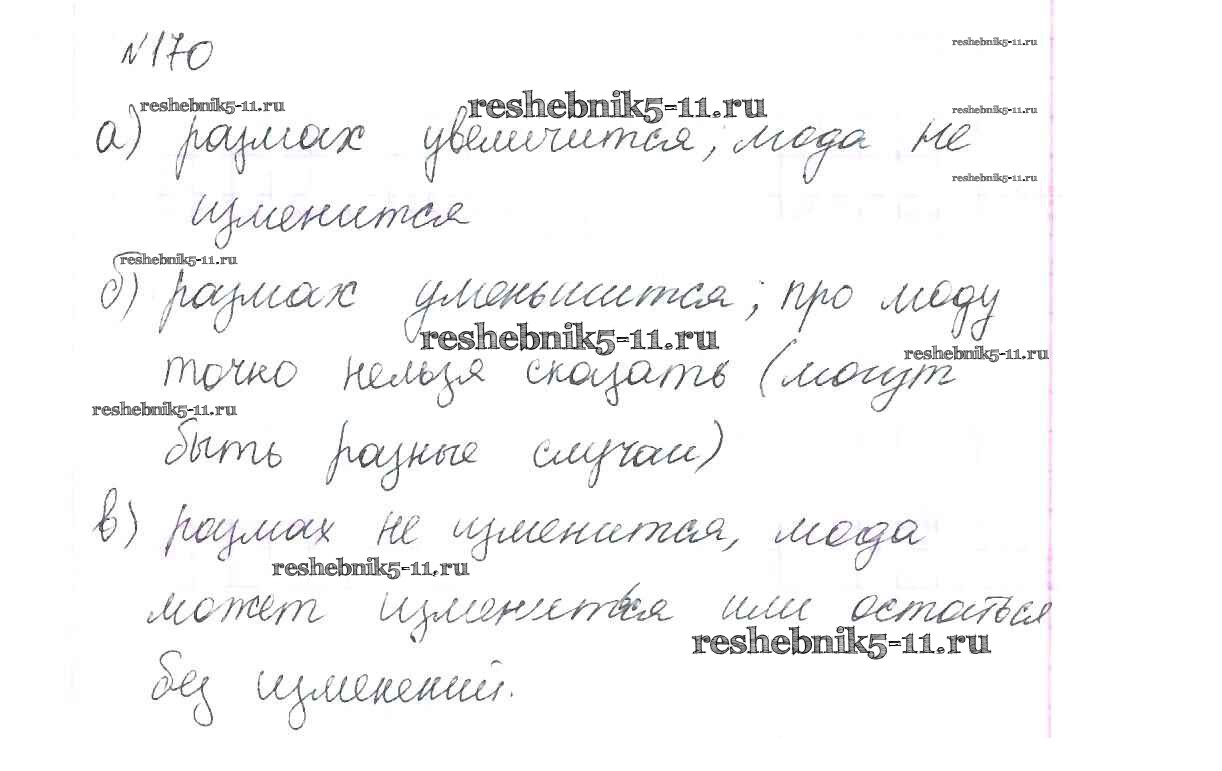 №170
reshebnik5-11.ru
reshebnik5-11.ru
reshebnik5-11.ru
reshebnik5-11.ru
а) размах увеличится; мода не
reshebnik5-11.ru
изменится
reshebnik5-11.ru
б) размах уменьшится; про моду
reshebnik5-11.ru
reshebnik5-11.ru
точно нельзя сказать (могут
reshebnik5-11.ru
быть разные случаи)
в) размах не изменится, мода
reshebnik5-11.ru
может измениться или остаться
reshebnik5-11.ru
без изменений.